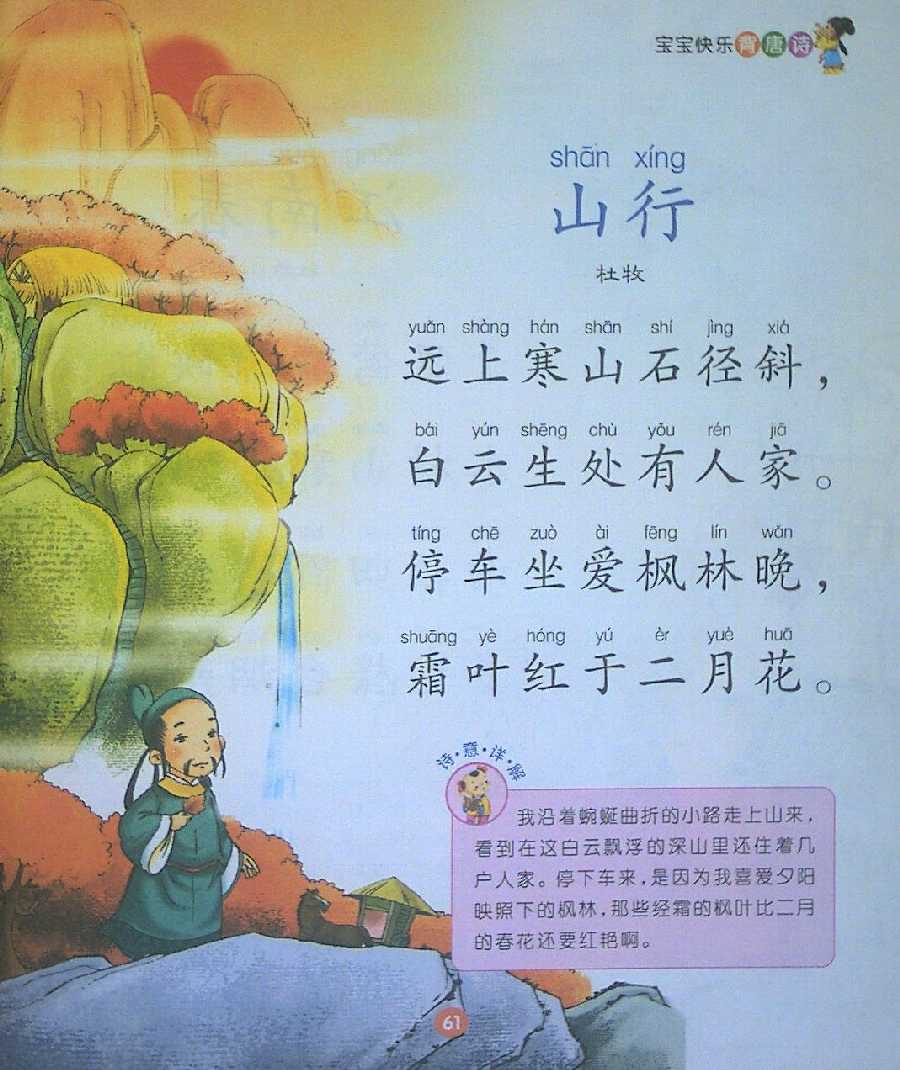 宝宝快乐背唐诗
shān xíng
山行
杜牧
yuǎn shàng hán shān shí jìng xiá
远上寒山石径斜，
bái yún shēng chù yǒu rén jiā
白云生处有人家。
tíng chē zuò ài fēng lín wǎn
停车坐爱枫林晚，
shuāng yè hóng yú èr yuè huā
霜叶红于二月花。
诗·意·详·解
我沿着蜿蜒曲折的小路走上山来，
看到在这白云飘浮的深山里还住着几
户人家。停下车来，是因为我喜爱夕阳
映照下的枫林，那些经霜的枫叶比二月
的春花还要红艳啊。
61